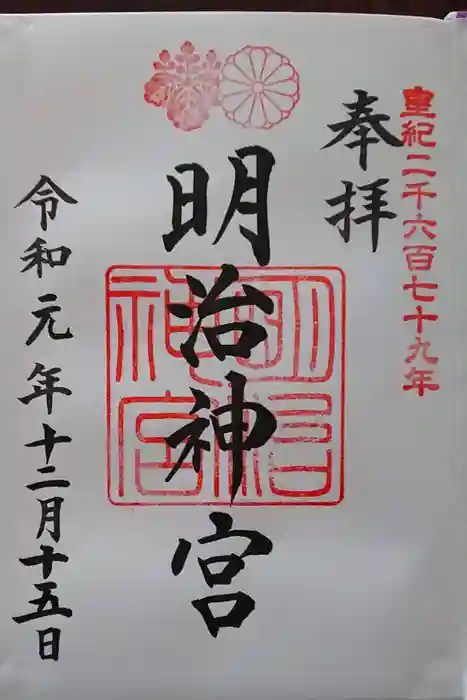 皇紀二千六百七十九年
奉拝
明治神宮
明治神宮
令和元年十二月十五日